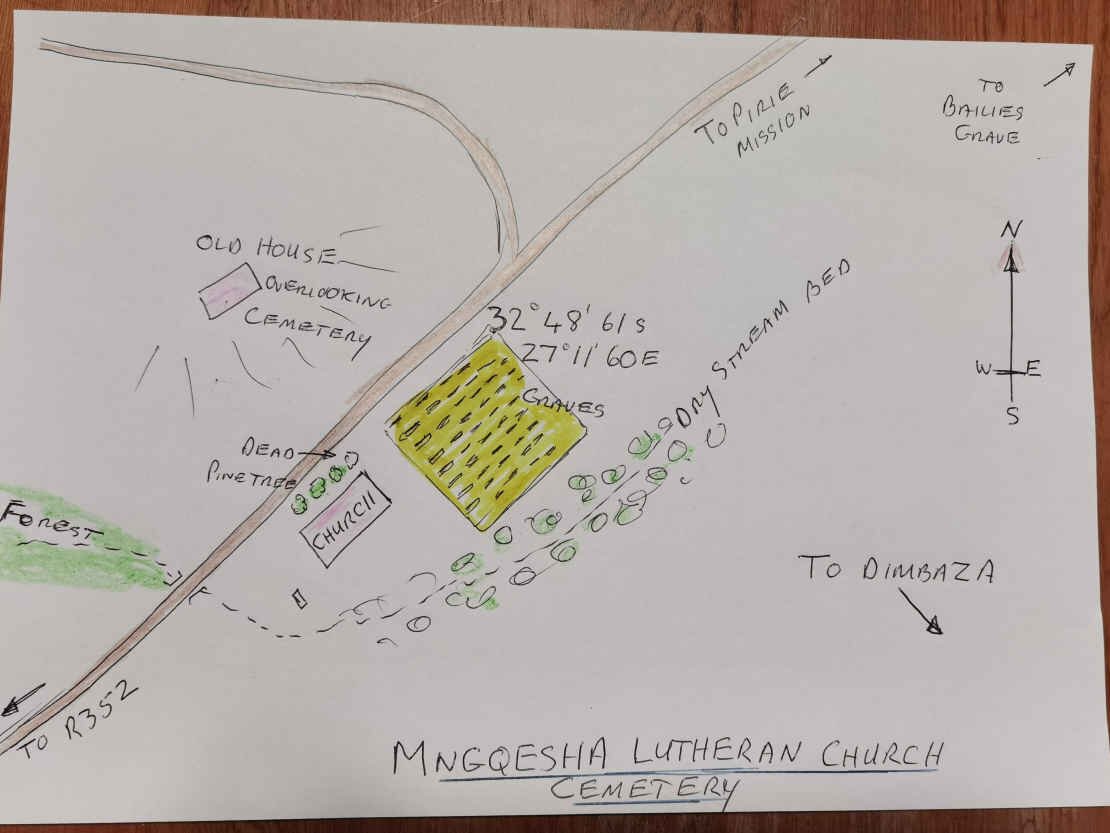 TO PIRIE
MISSION
TO
BAILIES
GRAVE
N
W E
S
OLD HOUSE
OVERLOOKING
CEMETERY
32° 48' 61 S
27° 11' 60 E
GRAVES
DRY STREAM BED
DEAD
PINE TREE
CHURCH
FOREST
TO DIMBAZA
TO R352
MNGQESHA LUTHERAN CHURCH
CEMETERY